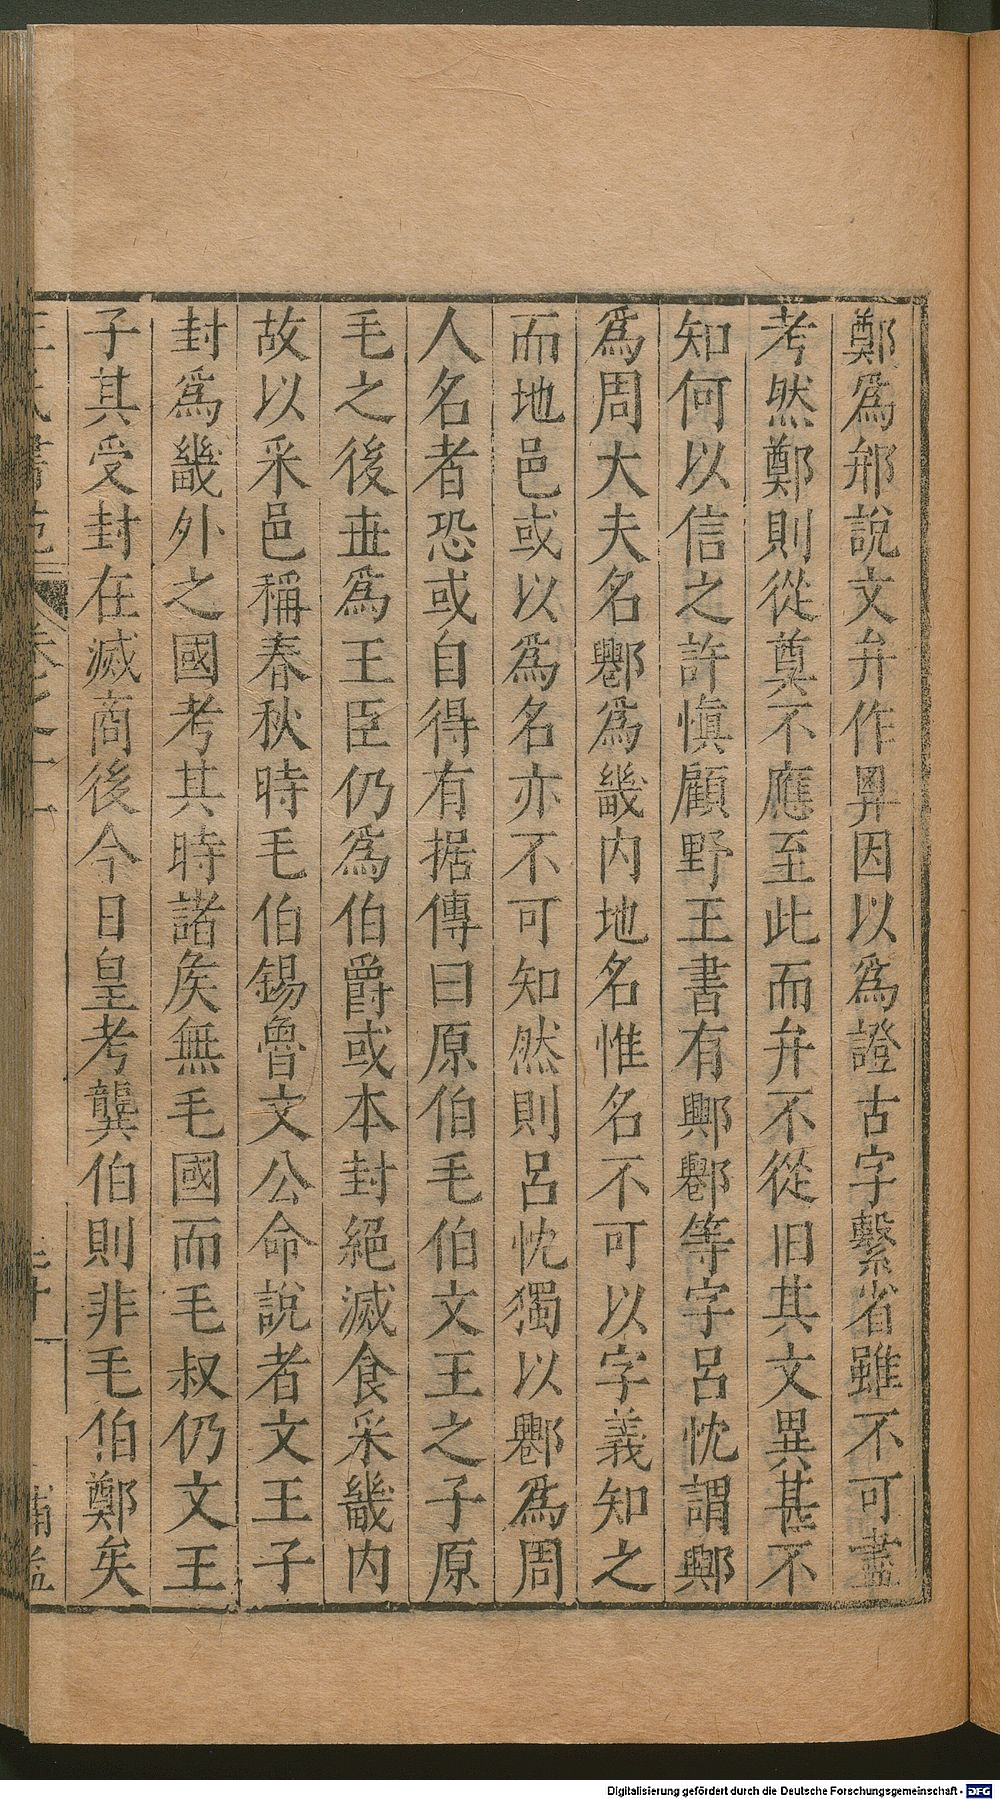 鄭爲邢說文弁作㢥因以爲證古字繫省雖不可盡
考然鄭則從奠不應至此而弁不從旧其文異甚不
知何以信之許愼顧野王書有鄓酆等字呂忱謂鄓
爲周大夫名酆爲畿内地名惟名不可以字義知之
而地邑或以爲名亦不可知然則呂忱獨以酆爲周
人名者恐或自得有据傳曰原伯毛伯文王之子原
毛之後世爲王臣仍爲伯爵或本封絕滅食采畿内
故以采邑稱春秋時毛伯錫魯文公命說者文王子
封爲畿外之國考其時諸矦無毛國而毛叔仍文王
子其受封在滅商後今日皇考龔伯則非毛伯鄭矣
卷之十一